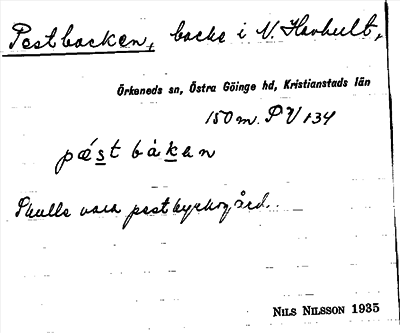 Pestbacken, backe i N. Hovhult,
Örkeneds sn, Östra Göinge hd, Kristianstads län
150 m. P V 134
pǽst båkan
Skulle vara pestkyrkogård.
NILS NILSSON 1935